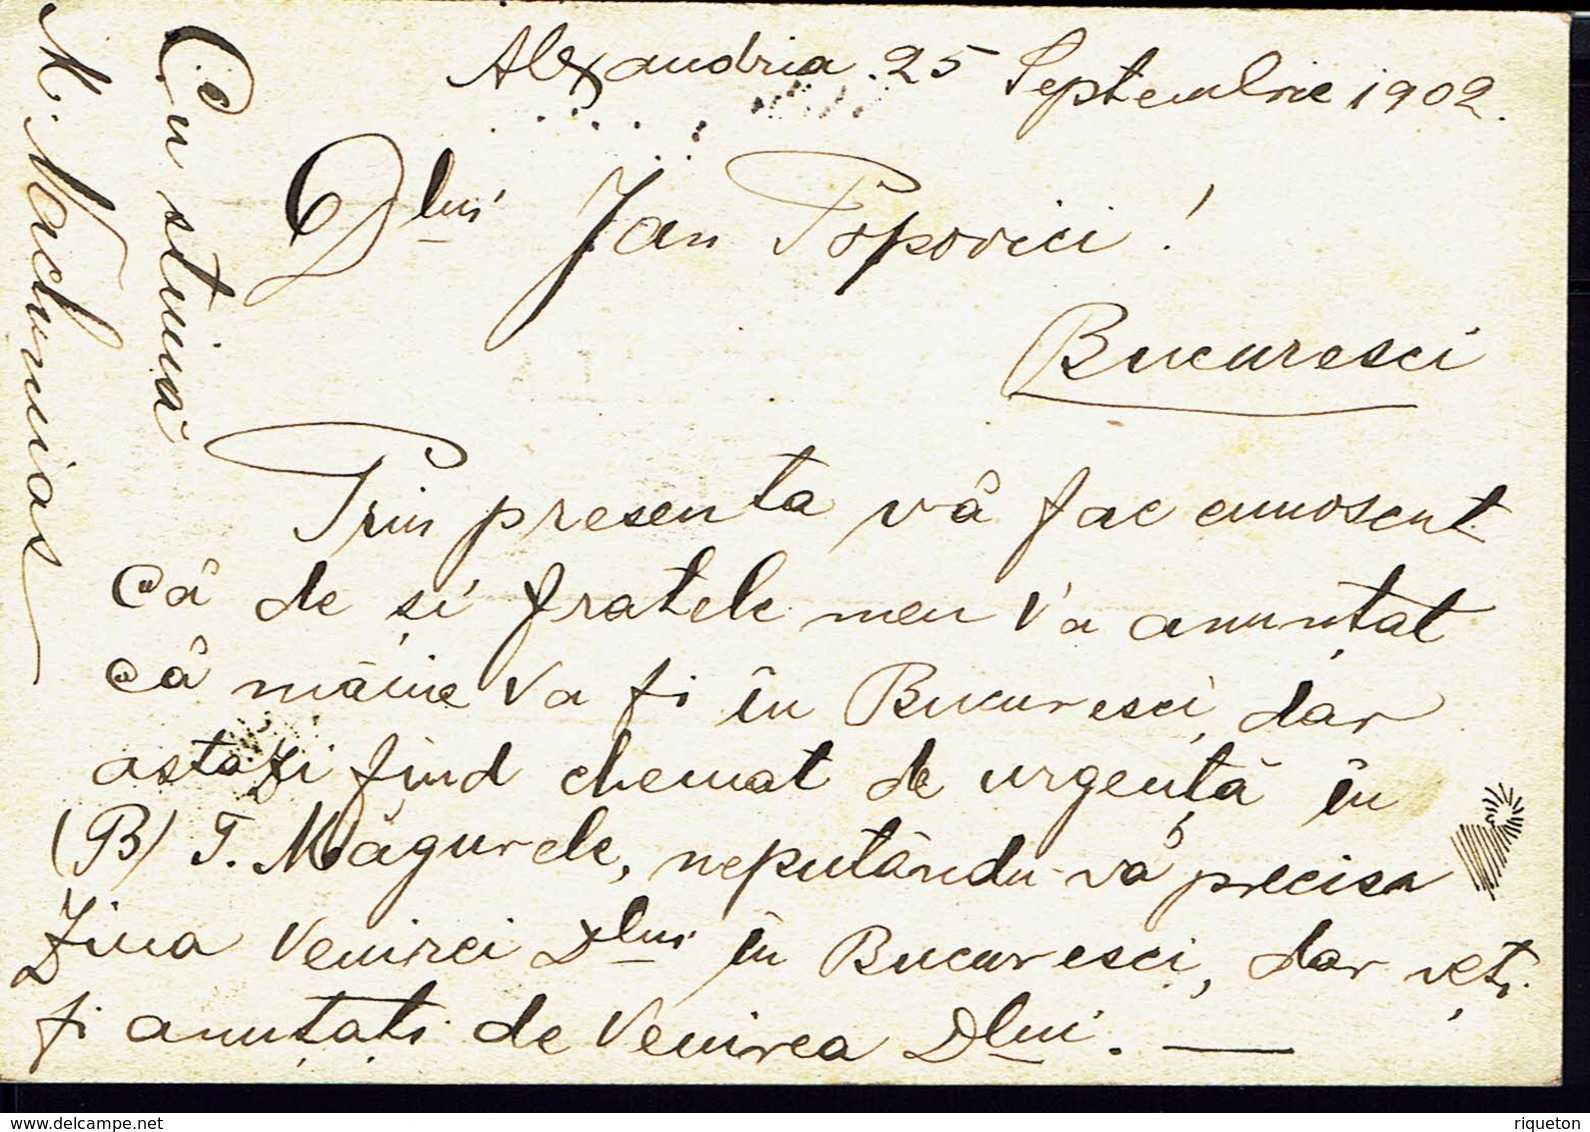 Alexandria 25 Septembrie 1902.
Dlui Jan Popovici!
Bucuresci
Prin presenta vă fac cunnoscut
că de și fratele meu v'a anunțat
că mâine va fi în Bucuresci, dar
astazi fiind chemat de urgență în
(B) T. Măgurele, neputându-vă precisa
ziua venirei Dlui în Bucuresci, dar veți
fi anuțați de venirea Dlui. —
Cu stimă
M. Nachmias
www.delcampe.net
riqueton